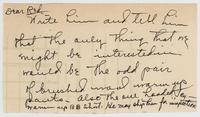 Dear Bob
Write him and tell him
that the only thing that we
might be interested in
would be the odd pair
of brushed wool warm up
pants. Also the
warm up BB shirt. He may ship them for inspection